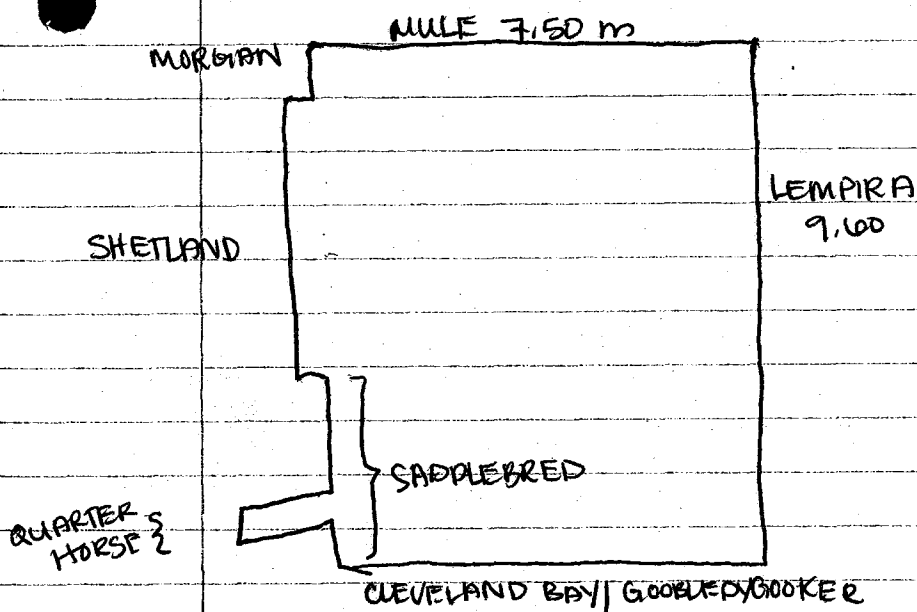 MULE 7.50 m
MORGAN
LEMPIRA
9.60
SHETLAND
SADDLEBRED
QUARTER
HORSE
CLEVELAND BAY/GOOBLEDYGOOKER